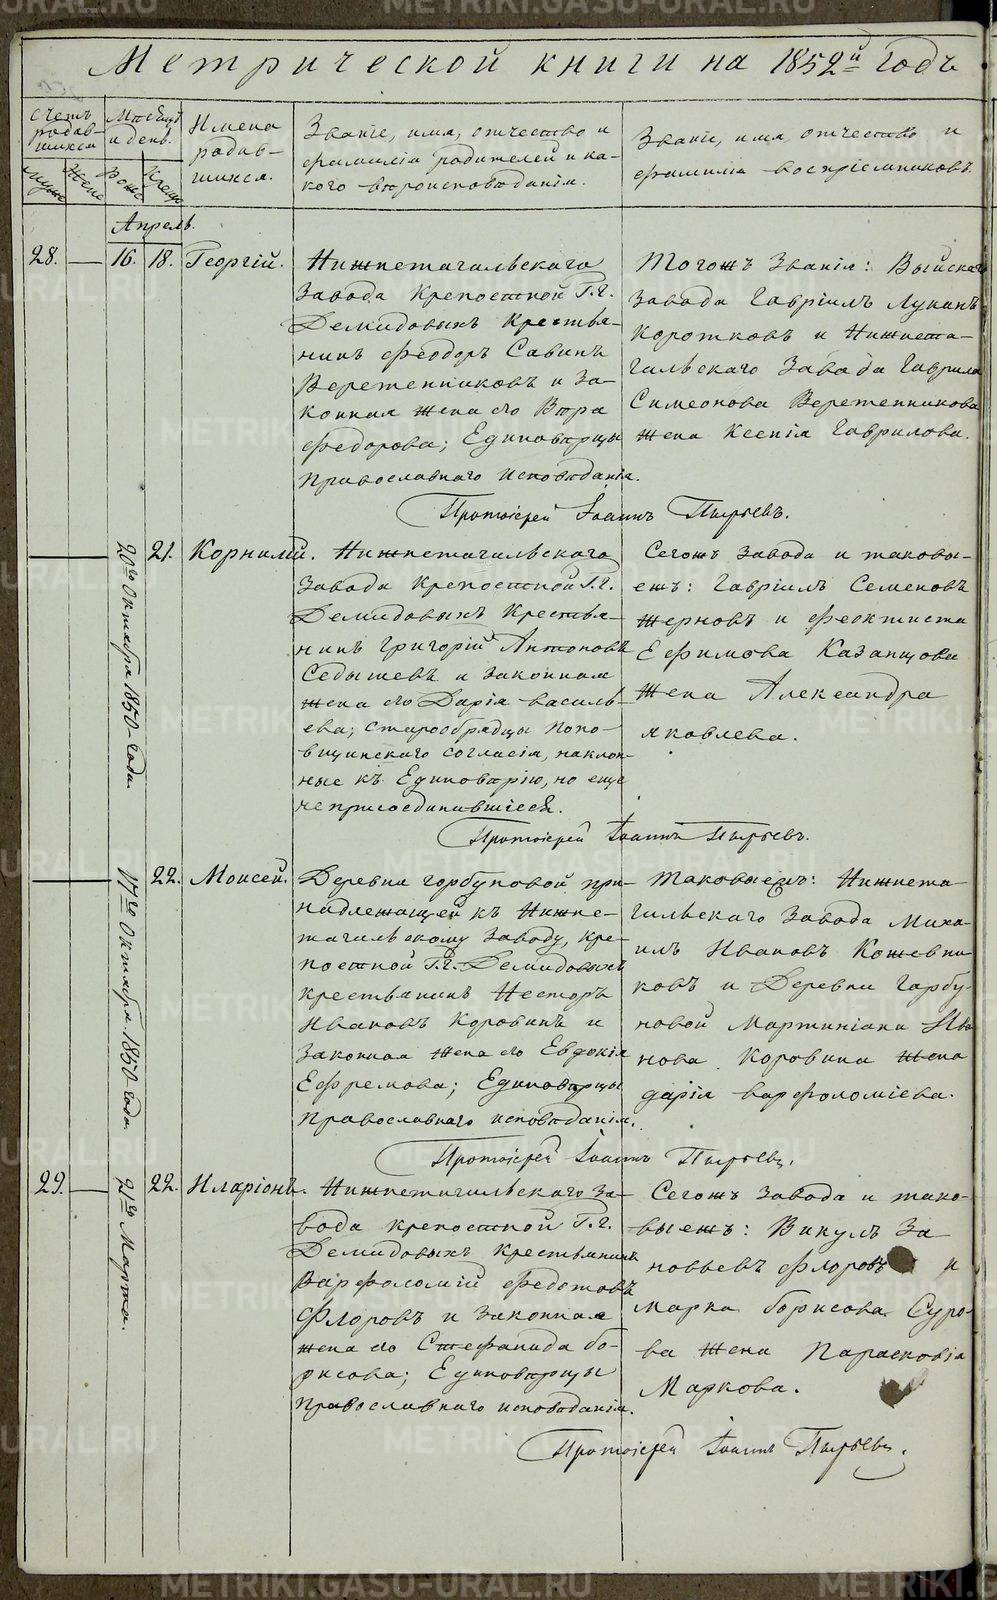 Метрической книги на 1852й годъ
Счетъ родив-шихся
Мѣсяцъ и день.
Имена родив-шихся.
Званіе, имя, отчество и фамилія родителей и ка-кого вѣроисповѣданія.
Званіе, имя, отчество и фамилія воспріемниковъ.
Муже
Жене
Рожд
Крещ
Апрель.
28. — 16. 18. Георгій.
Нижнетагильскаго
Завода крепостной Г.г.
Демидовыхъ крестья-
нинъ Феодоръ Савинъ
Веретенниковъ и за-
конная жена его Вѣра
Федорова; Единовѣрцы
Православнаго исповѣданія.
Тогожъ Званія: Выйскаго
завода Гавріилъ Лукинъ
Коротковъ и Нижнета-
гильскаго Завода Гаврила
Симеонова Веретенникова
жена Ксенія Гаврилова.
Протоіерей Іоаннъ Пырьевъ.
20го Октября 1850 года.
21. Корнилій.
Нижнетагильскаго
Завода Крепостной Г.г.
Демидовыхъ Крестья-
нинъ Григорій Антоновъ
Седышевъ и законная
жена его Дарія Василь-
ева; старообрядцы попо-
вщинскаго согласія, наклон-
ные къ Единовѣрію, но еще
неприсоединившіеся.
Сегожъ завода и таковы-
ежъ: Гавріилъ Семеновъ
Жерновъ и Феоктиста
Ефимова Казанцова
жена Александра
Яковлева.
Протоіерей Іоаннъ Пырьевъ.
17го Октября 1850 года.
22. Моисей.
Деревни Горбуновой при-
надлежащей къ Нижне-
тагильскому Заводу, кре-
постной Г.г. Демидовыхъ
крестьянинъ Несторъ
Ивановъ Коровинъ и
Законная жена его Евдокія
Ефремова; Единовѣрцы
Православнаго исповѣданія.
Таковыежъ: Нижнета-
гильскаго Завода Миха-
илъ Ивановъ Кожевни-
ковъ и Деревни Горбу-
новой Мартиніана Ива
нова Коровина жена
Дарія Варфоломіева.
Протоіерей Іоаннъ Пырьевъ.
21го Марта.
29. — 22. Иларіонъ.
Нижнетагильскаго За-
вода крепостной Г.г.
Демидовыхъ Крестьянинъ
Варфоломій Федотовъ
Флоровъ и законная
жена его Стефанида Бо-
рисова; Единовѣрцы
Православнаго исповѣданія.
Сегожъ завода и тако-
выежъ: Викулъ За
новьевъ Флоровъ и
Марка Борисова Суро-
ва жена Парасковія
Маркова.
Протоіерей Іоаннъ Пырьевъ.
METRIKI.GASO-URAL.RU